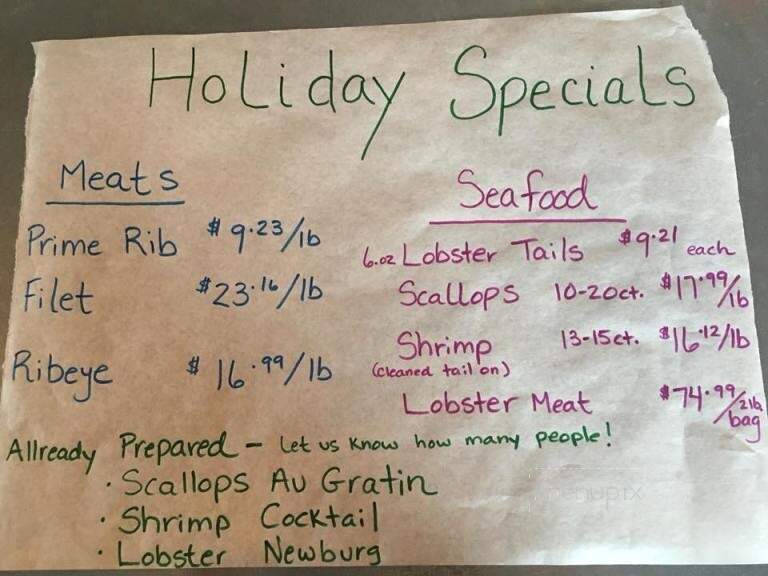 Holiday Specials
Meats
Prime Rib $9.23/lb
Filet $23.16/lb
Ribeye $16.99/lb
Seafood
6.oz Lobster Tails $9.21 each
Scallops 10-20ct. $17.99/lb
Shrimp 13-15ct. $16.12/lb
(cleaned tail on)
Lobster Meat $74.99/2lb bag
Allready Prepared - Let us know how many people!
· Scallops Au Gratin
· Shrimp Cocktail
· Lobster Newburg
menupix